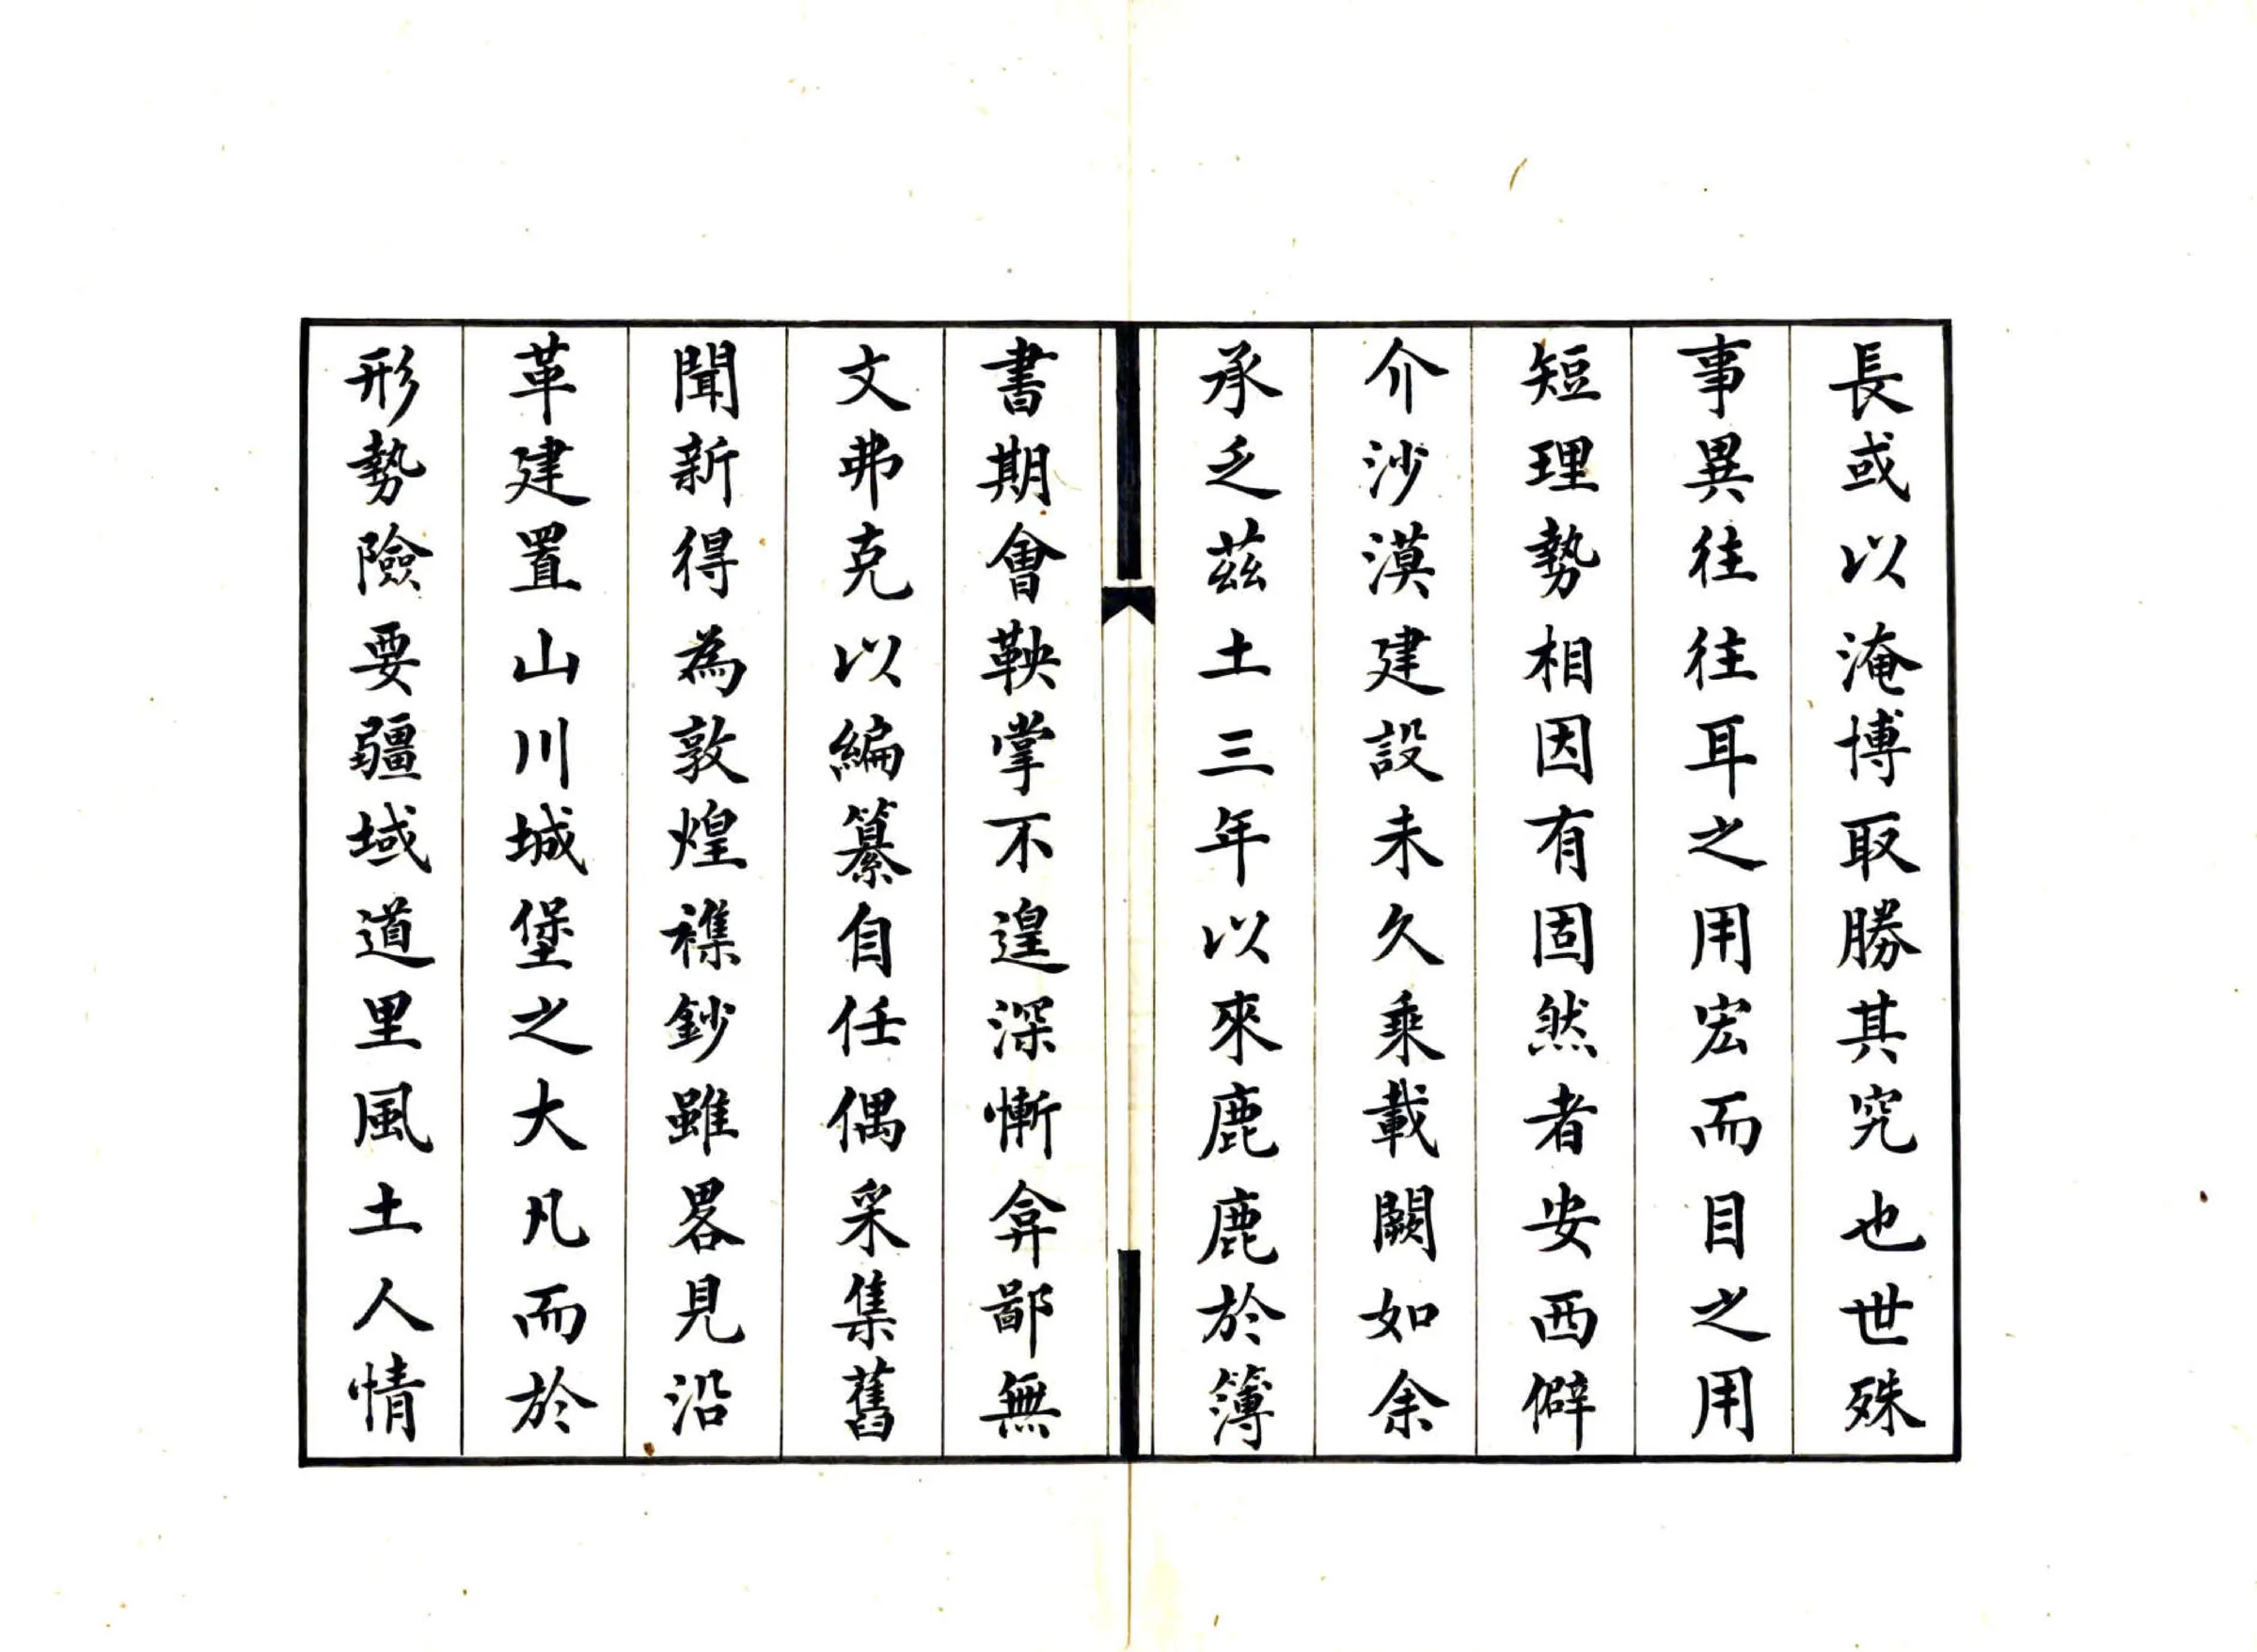 長或以淹博取勝其究也世殊
事異往往耳之用宏而目之用
短理勢相因有固然者安西僻
介沙漠建設未久乘載闕如余
承乏茲土三年以來鹿鹿於簿
書期會鞅掌不遑深慚弇鄙無
文弗克以編纂自任偶采集舊
聞新得為敦煌襍鈔雖畧見沿
革建置山川城堡之大凡而於
形勢險要疆域道里風土人情